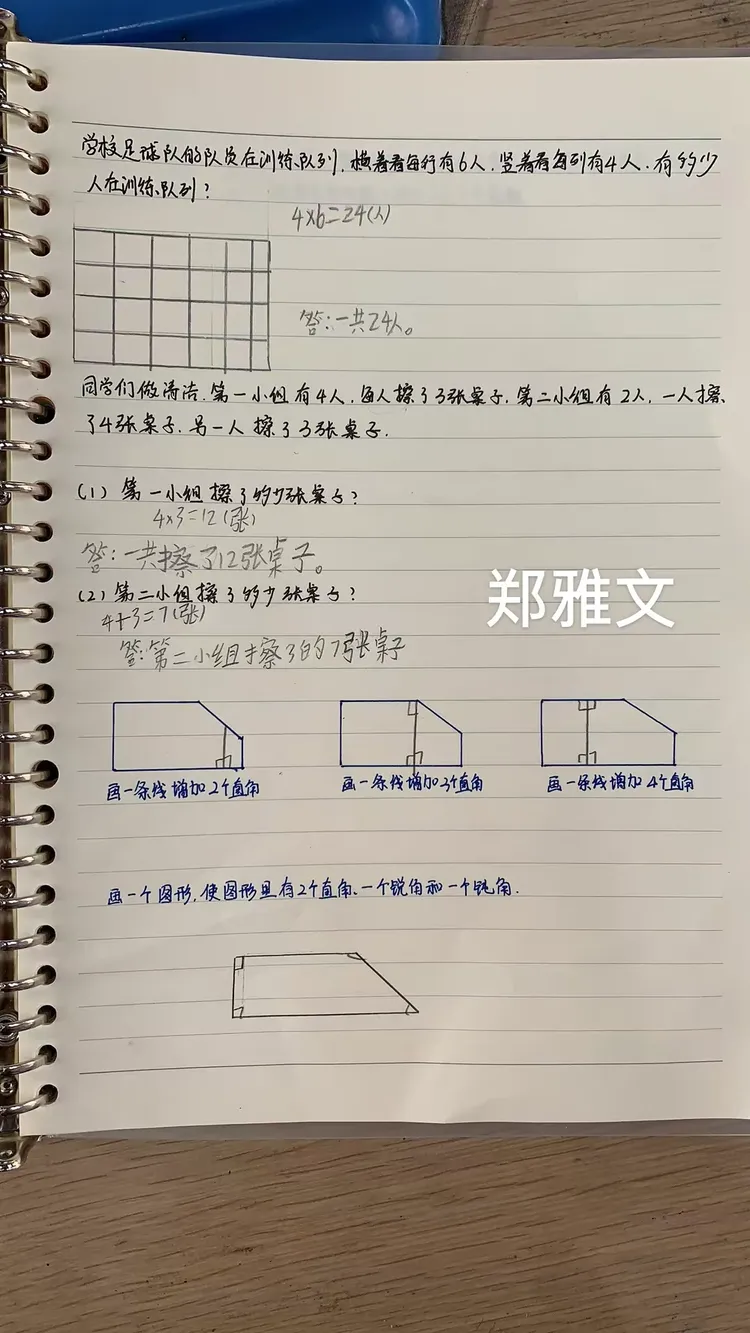 学校足球队的队员在训练队列,横着看每行有6人,竖着看每列有4人,有多少
人在训练队列?
4×6=24(人)
答:一共24人。
同学们做清洁,第一小组有4人,每人擦了3张桌子,第二小组有2人,一人擦
了4张桌子,另一人擦了3张桌子.
(1)第一小组擦了多少张桌子?
4×3=12(张)
答:一共擦了12张桌子。
(2)第二小组擦了多少张桌子?
4+3=7(张)
答:第二小组擦了的7张桌子
郑雅文
画一条线增加2个直角
画一条线增加3个直角
画一条线增加4个直角
画一个图形,使图形里有2个直角、一个锐角和一个钝角.